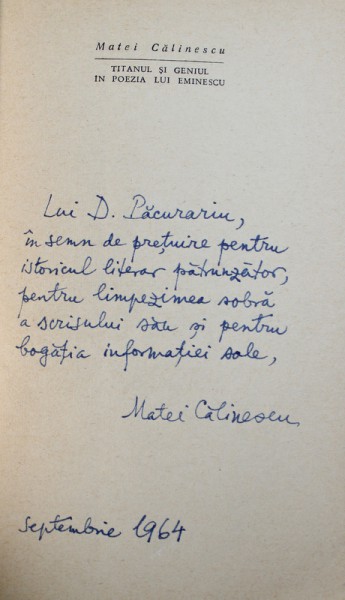 Matei Călinescu
TITANUL ȘI GENIUL
ÎN POEZIA LUI EMINESCU
Lui D. Păcurariu,
în semn de prețuire pentru
istoricul literar pătrunzător,
pentru limpezimea sobră
a scrisului său și pentru
bogăția informației sale,
Matei Călinescu
septembrie 1964